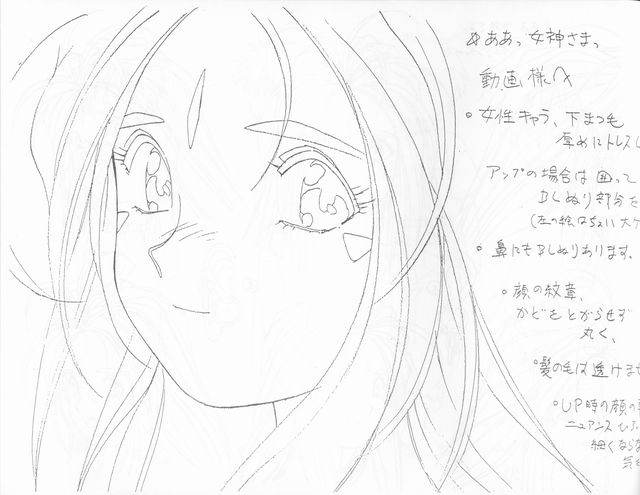 ああっ女神さまっ
動画様へ
○女性キャラ、下まつ毛
厚めにトレスし
アップの場合は囲って
BLぬり部分を
(左の絵はちょい大ゲ
○鼻にもBLぬりあります。
○顔の紋章、
かどをとがらせず
丸く、
○髪の毛は透けませ
○UP時の顔の
ニュアンス
細くならな
気を